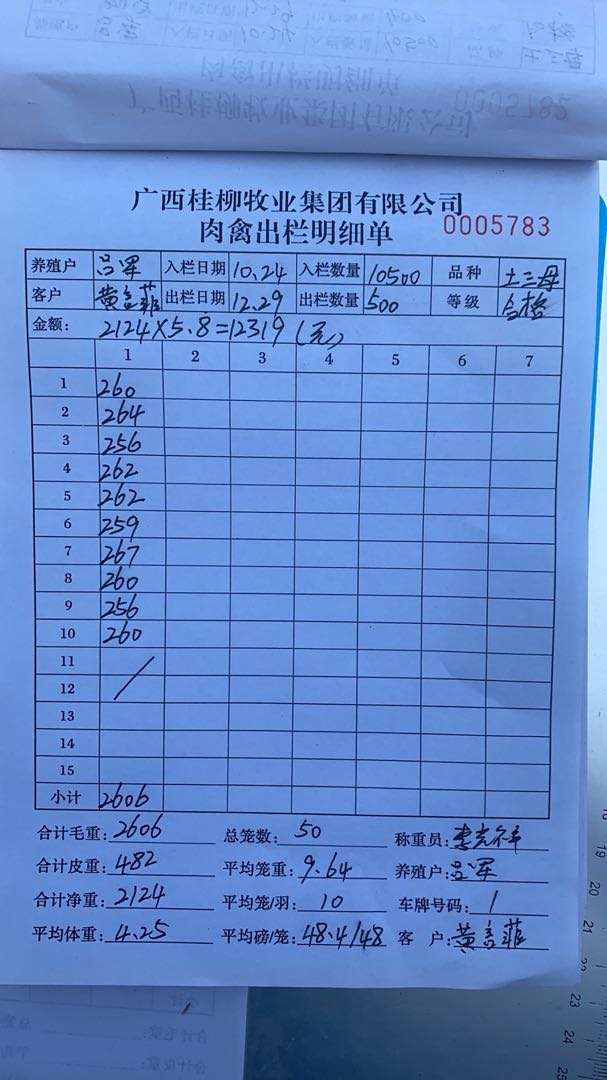 广西桂柳牧业集团有限公司
肉禽出栏明细单 0005783
养殖户 吕军 入栏日期 10.24 入栏数量 10500 品种 土三母
客户 黄言菲 出栏日期 12.29 出栏数量 500 等级 合格
金额: 2124×5.8=12319(元)
1 2 3 4 5 6 7
1 260
2 264
3 256
4 262
5 262
6 259
7 267
8 260
9 256
10 260
11
12
13
14
15
小计 2606
合计毛重: 2606 总笼数: 50 称重员:
合计皮重: 482 平均笼重: 9.64 养殖户: 吕军
合计净重: 2124 平均笼/羽: 10 车牌号码: 1
平均体重: 4.25 平均磅/笼: 48.4/48 客 户: 黄言菲
19
20
21
22
23
24
25